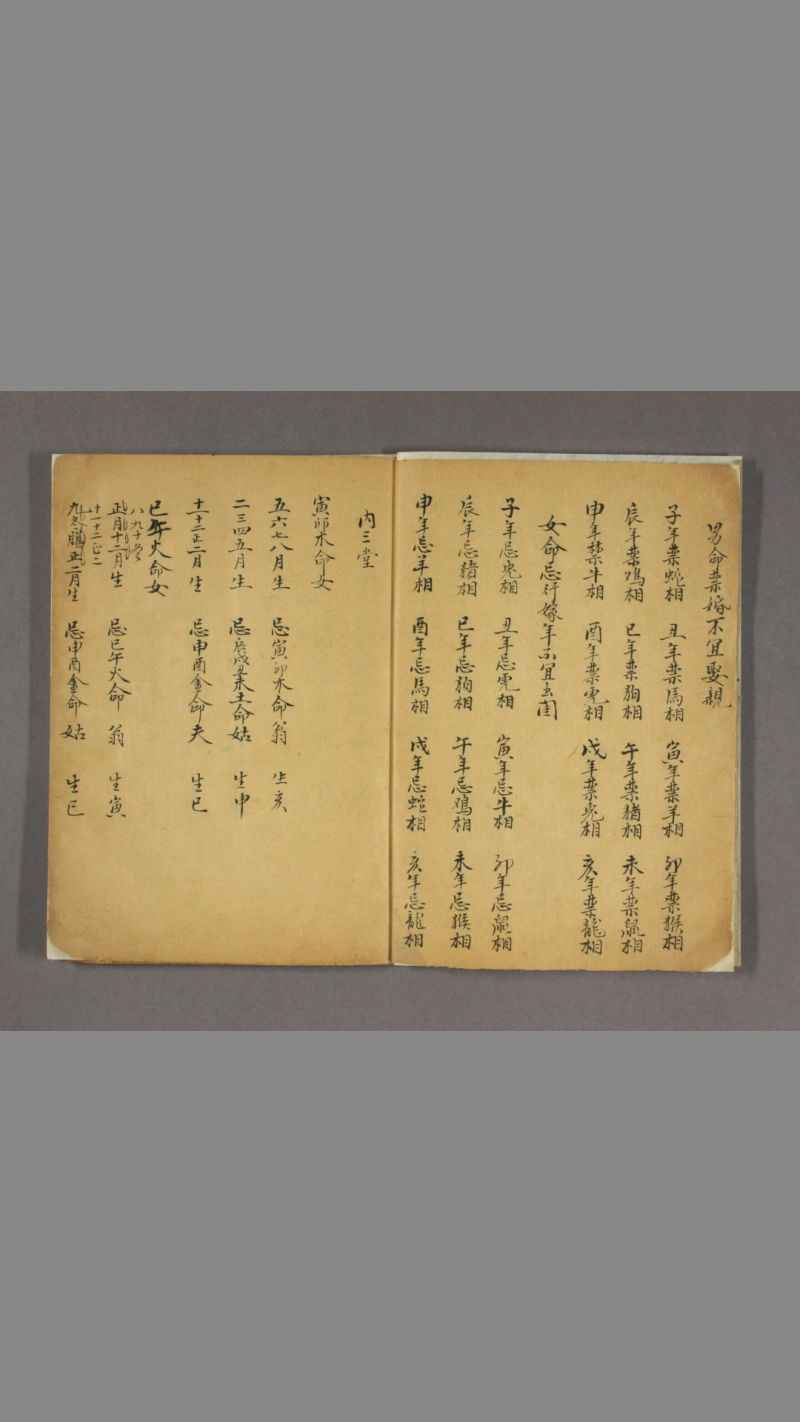 男命禁婚不宜娶親
子年禁蛇相 丑年禁馬相 寅年禁羊相 卯年禁猴相
辰年禁鸡相 巳年禁狗相 午年禁猪相 未年禁鼠相
申年禁牛相 酉年禁虎相 戌年禁兎相 亥年禁龍相
女命忌行嫁年不宜出閨
子年忌兎相 丑年忌虎相 寅年忌牛相 卯年忌鼠相
辰年忌猪相 巳年忌狗相 午年忌鸡相 未年忌猴相
申年忌羊相 酉年忌馬相 戌年忌蛇相 亥年忌龍相
内三堂
寅卯木命女
五六七八月生 忌寅卯木命翁 生亥
二三四五月生 忌辰戌丑未土命姑 生申
十一十二正二月生 忌申酉金命夫 生巳
巳午火命女
八九十
正月十二月生 忌巳午火命 翁 生寅
十一十二正二
九冬臘正二月生 忌申酉金命 姑 生巳